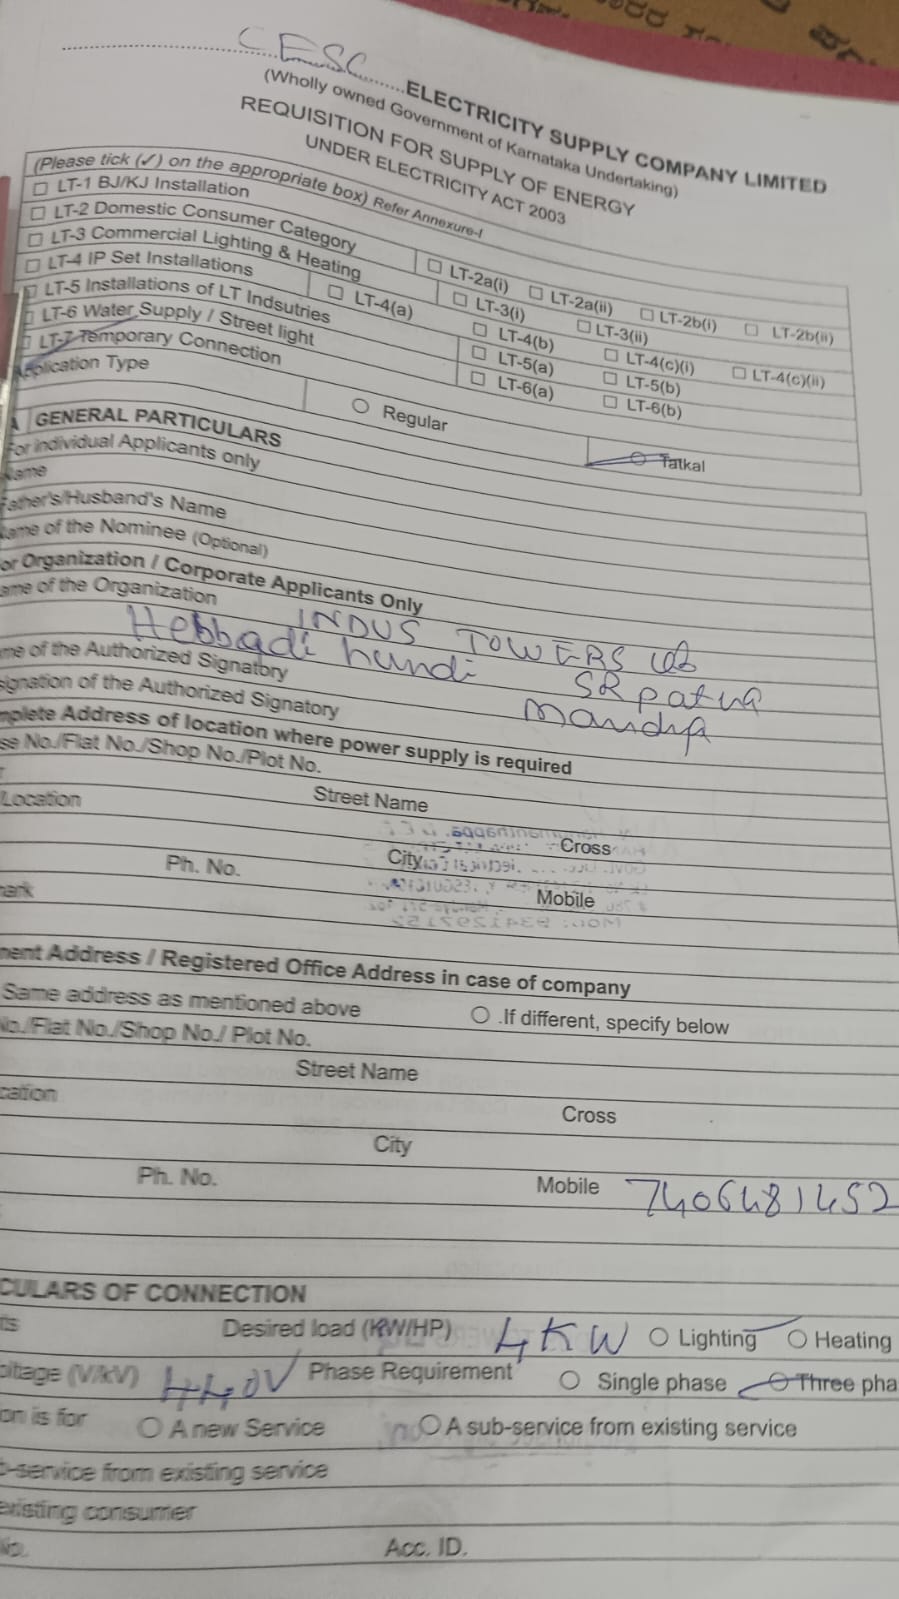 CESC ELECTRICITY SUPPLY COMPANY LIMITED
(Wholly owned Government of Karnataka Undertaking)
REQUISITION FOR SUPPLY OF ENERGY
UNDER ELECTRICITY ACT 2003
(Please tick (✓) on the appropriate box) Refer Annexure-I
☐ LT-1 BJ/KJ Installation
☐ LT-2 Domestic Consumer Category ☐ LT-2a(i) ☐ LT-2a(ii) ☐ LT-2b(i) ☐ LT-2b(ii)
☐ LT-3 Commercial Lighting & Heating ☐ LT-3(i) ☐ LT-3(ii)
☐ LT-4 IP Set Installations ☐ LT-4(a) ☐ LT-4(b) ☐ LT-4(c)(i) ☐ LT-4(c)(ii)
☐ LT-5 Installations of LT Indsutries ☐ LT-5(a) ☐ LT-5(b)
☐ LT-6 Water Supply / Street light ☐ LT-6(a) ☐ LT-6(b)
☐ LT-7 Temporary Connection
Application Type ○ Regular ○ Tatkal
A GENERAL PARTICULARS
For individual Applicants only
Name
Father's/Husband's Name
Name of the Nominee (Optional)
or Organization / Corporate Applicants Only
ame of the Organization INDUS TOWERS
Hebbadi hundi SR patna
me of the Authorized Signatory
signation of the Authorized Signatory Mandya
mplete Address of location where power supply is required
se No./Flat No./Shop No./Plot No.
Street Name
/Location
Cross
City
Ph. No. Mobile
mark
nent Address / Registered Office Address in case of company
Same address as mentioned above ○ .If different, specify below
No./Flat No./Shop No./ Plot No.
Street Name
cation
Cross
City
Ph. No. Mobile 7406481452
CULARS OF CONNECTION
ts Desired load (KW/HP) 4KW ○ Lighting ○ Heating
oltage (V/kV) 440V Phase Requirement ○ Single phase ○ Three pha
on is for ○ A new Service ○ A sub-service from existing service
b-service from existing service
existing consumer
No. Acc. ID.